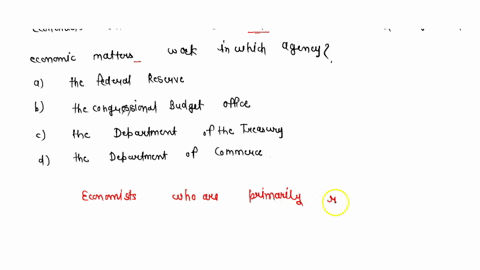 economic matters work in which agency?
a) the federal Reserve
b) the congressional Budget office
c) the Department of the Treasury
d) the Department of Commerce
Economists who are primarily r